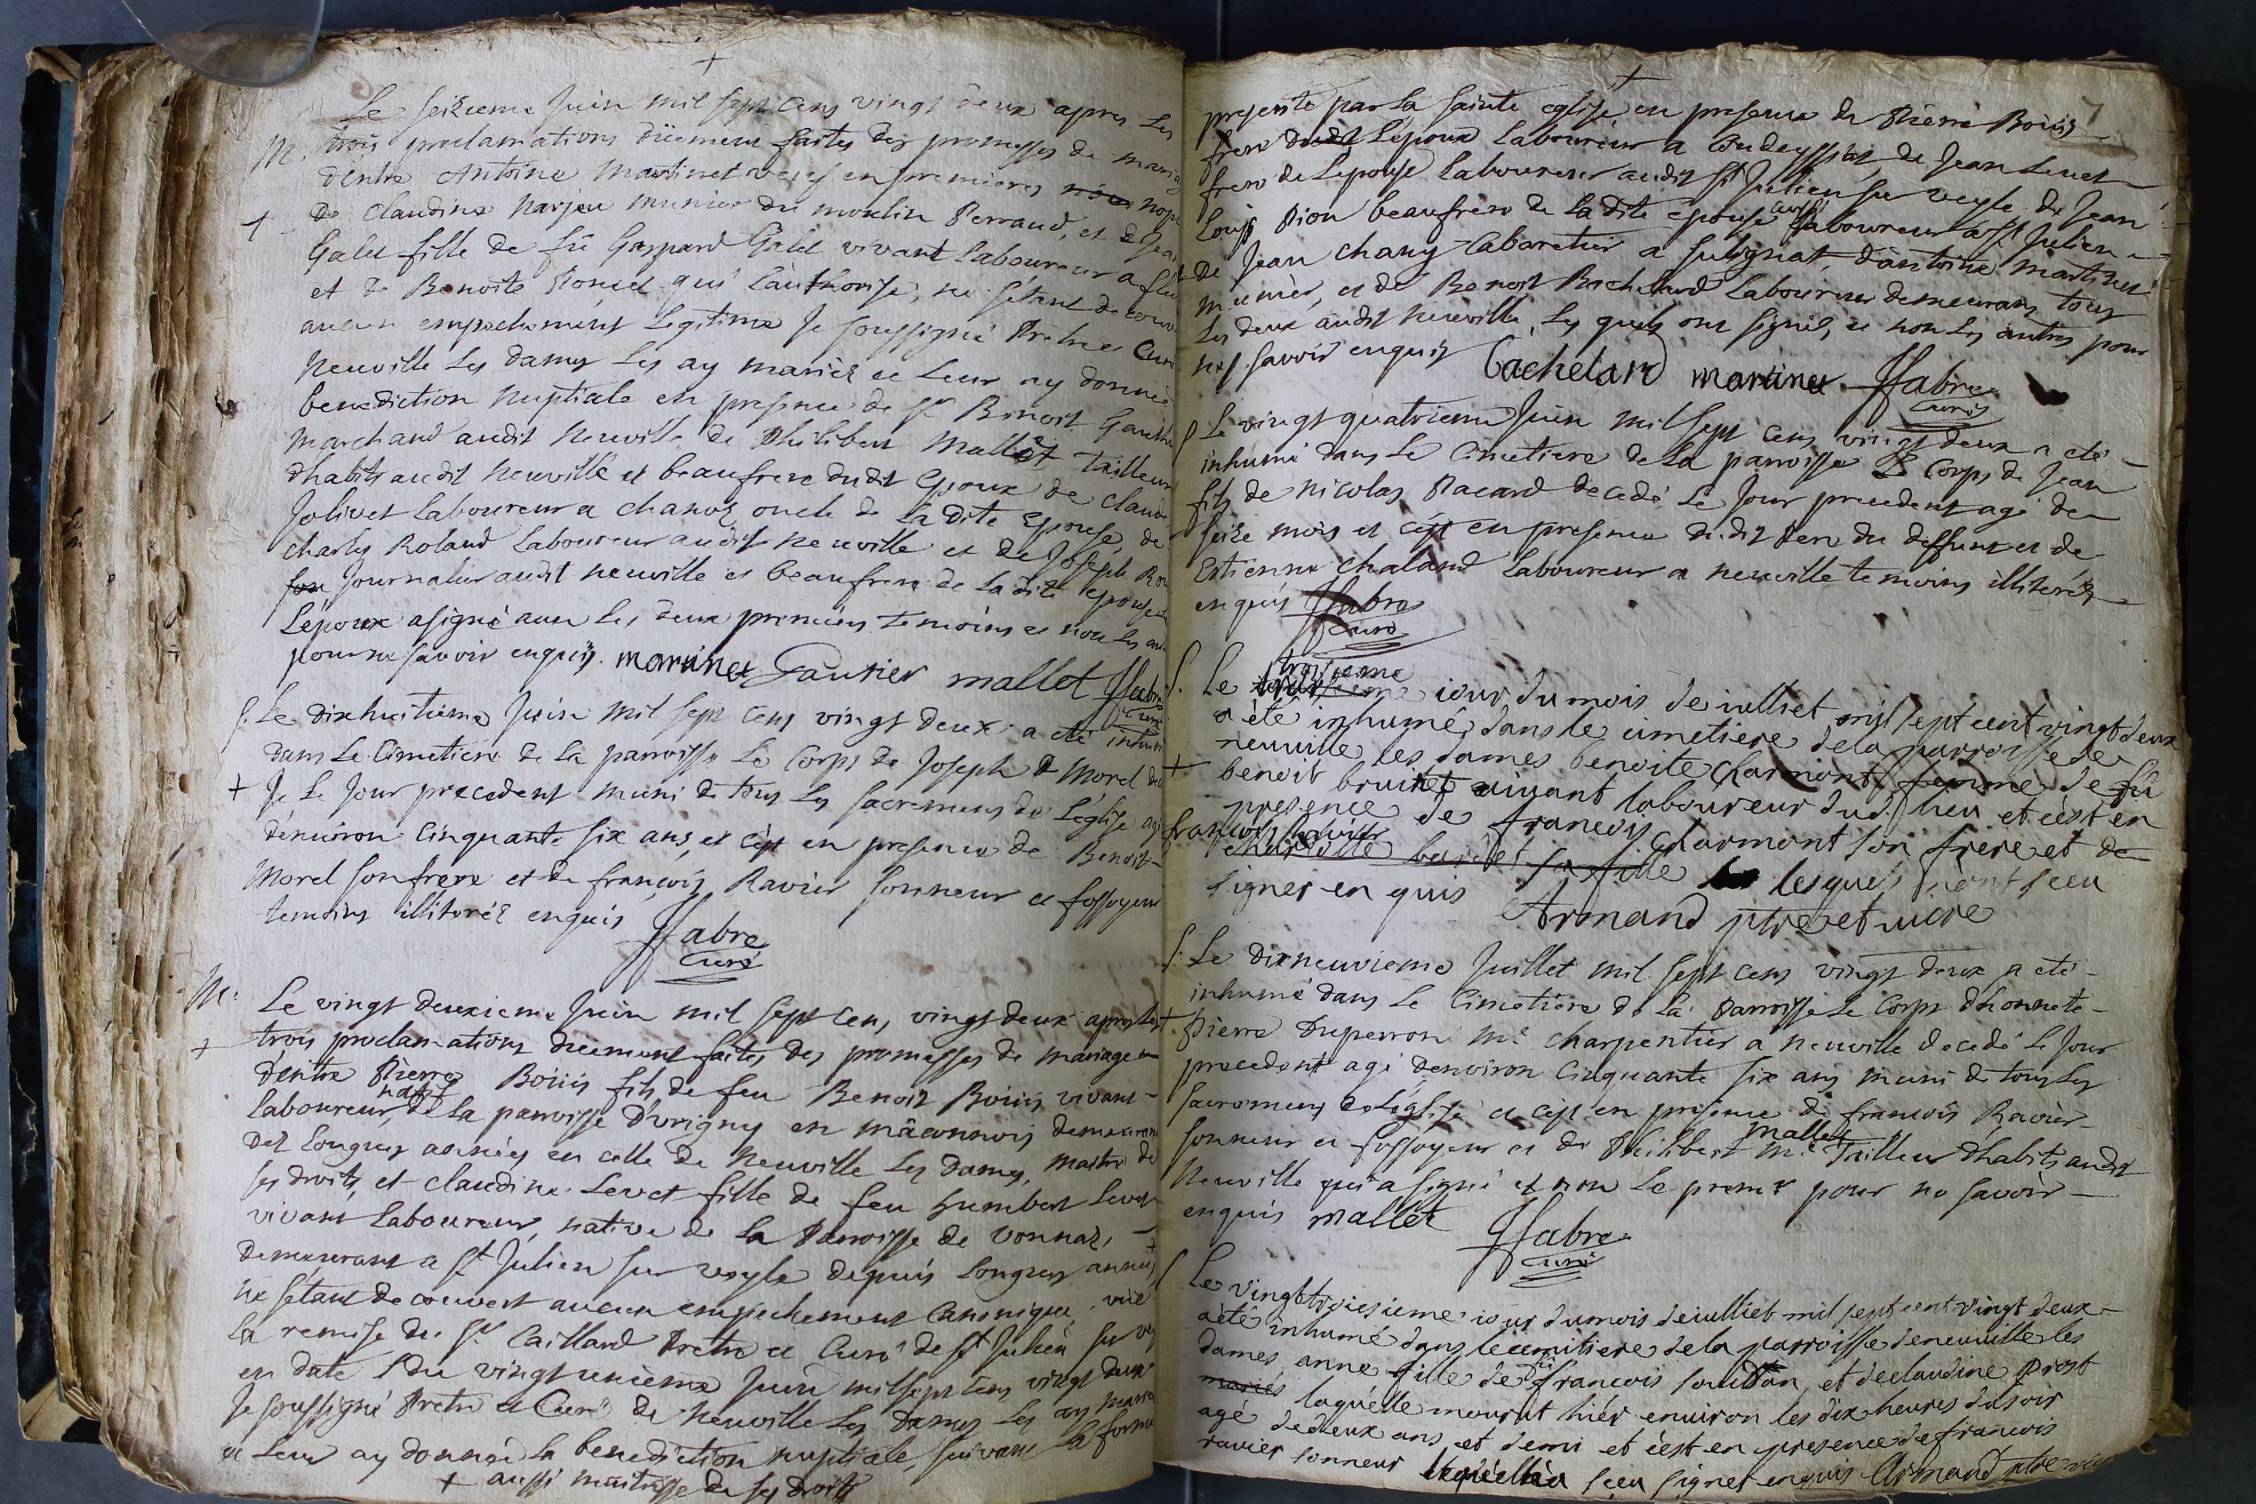 Le seizieme Juin mil sept cens vingt deux apres les
M. trois proclamations düement faites des promesses de mariag
d'entre Antoine Martinet veuf en premieres nopc
de Claudine Narjeu munier du moulin Perraud, et de Jea
Galet fille de fû Gaspard Galet vivant Laboureur a
et de Benoite Poncet qui L'authorise, ne s'étant decouv
aucun empechement Legitime Je soussigné Prêtre Curé
Neuville Les dames Les ay mariéz et Leur ay donné
benediction nuptiale en presence de Sr Benoit Gautie
marchand audit neuville de Philibert Mallet Tailleur
d'habits audit neuville et beaufrere dudit Epoux de Claude
Jolivet Laboureur a Chanoz oncle de La dite Epouse, de
Charles Roland Laboureur audit neuville et de Joseph
Journalier audit neuville et beaufrere de La dite epouse
L'époux a signé avec Les deux premiers temoins et non Les au
pour ne savoir enquis. martinet Gautier mallet Ffabre
curé
S. Le dixhuitieme Juin mil sept cens vingt deux a eté inhum
dans Le Cimetiere de La parroisse Le Corps de Joseph Morel
Le Jour precedent muni de tous Les sacremens de L'église agé
d'environ Cinquante six ans, et c'est en presence de Benoit
Morel son frere et de françois Ravier sonneur et fossoyeur
temoins illiteréz enquis Ffabre
curé
M. Le vingt deuxieme Juin mil sept cens vingt deux apres Les
trois proclamations düement faites des promesses de mariage
d'entre Pierre Boüis fils de feu Benoit Boüis vivant
natif
Laboureur, de La parroisse d'Urigny en mâconnois demeurant
dez Longues années en celle de Neuville Les dames, maitre de
ses droits, et Claudine Levet fille de feu Humbert Levet
vivant Laboureur, native de La Parroisse de Vonnaz, +
demeurant a St Julien sur veyle depuis Longues années,
ne s'étant decouvert aucun empechement Canonique, vüe
La remise du Sr Caillard Prêtre et Curé de St Julien sur vey
en date du vingt unième Juin mil sept cens vingt deux
Je soussigné Prêtre et Curé de Neuville Les Dames Les ay marié
et Leur ay donné La benediction nuptiale, suivant La forme
+ aussi maitresse de ses droits
7
presente par La sainte eglise en presence de Pierre Boüis
frere dudit L'époux Laboureur a Condeyssiat, de Jean Levet
frere de L'epouse Laboureur audit St Julien sur veyle de Jean
Louis Pion beaufrere de La dite epouse aussi Laboureur a St Julien
de Jean Chany Cabaretier a Sulignat, d'Antoine Martinet
munier, et de Benoit Bachelard Laboureur demeurans tous
Les deux audit Neuville, Les quels ont signéz, et non Les autres pour
ne savoir enquis Bachelard martinet Ffabre
curé
S Le vingt quatrieme Juin mil sept cens vingt deux a eté
inhumé dans Le Cimetiere de La parroisse Le Corps de Jean
fils de Nicolas Pacard decedé Le Jour precedent agé de
seize mois et c'est en presence dudit Pere du deffunt et de
Estienne Chaland Laboureur a neuville temoins illiteréz
enquis Ffabre
curé
troisieme
S. Le iour du mois de iulliet mil sept cent vingt deux
a été inhumé dans le cimetiere de la parroisse de
neuville les dames benoite Charmont femme de fû
benoit brunet vivant laboureur dud. lieu et c'est en
presence de francois Charmont son frere et de
francois ravier
sa fille lesquels n'ont sceu
signer en quis Armand ptre et vicre
S. Le dixneuvieme Juillet mil sept cens vingt deux a eté
inhumé dans Le Cimetiere de La Parroisse Le Corps d'honnete
Pierre Duperron me charpentier a neuville decedé Le Jour
precedent agé d'environ Cinquante six ans muni de tous Les
sacremens de L'église et c'est en presence de francois Ravier
sonneur et fossoyeur et de Philibert mallet me Tailleur d'habits audit
Neuville qui a signé et non Le premr pour ne savoir
enquis mallet Ffabre
curé
S Le vingt troiesieme iour du mois de iulliet mil sept cent vingt deux
a été inhumé dans le cemitiere de la parroisse de neuville les
dames anne fille de fû francois souttan, et de claudine Prost
mariés laquelle mourut hier environ les dix heures du soir
agé de deux ans et demi et c'est en presence de francois
ravier sonneur sceu signer enquis Armand ptre vicre